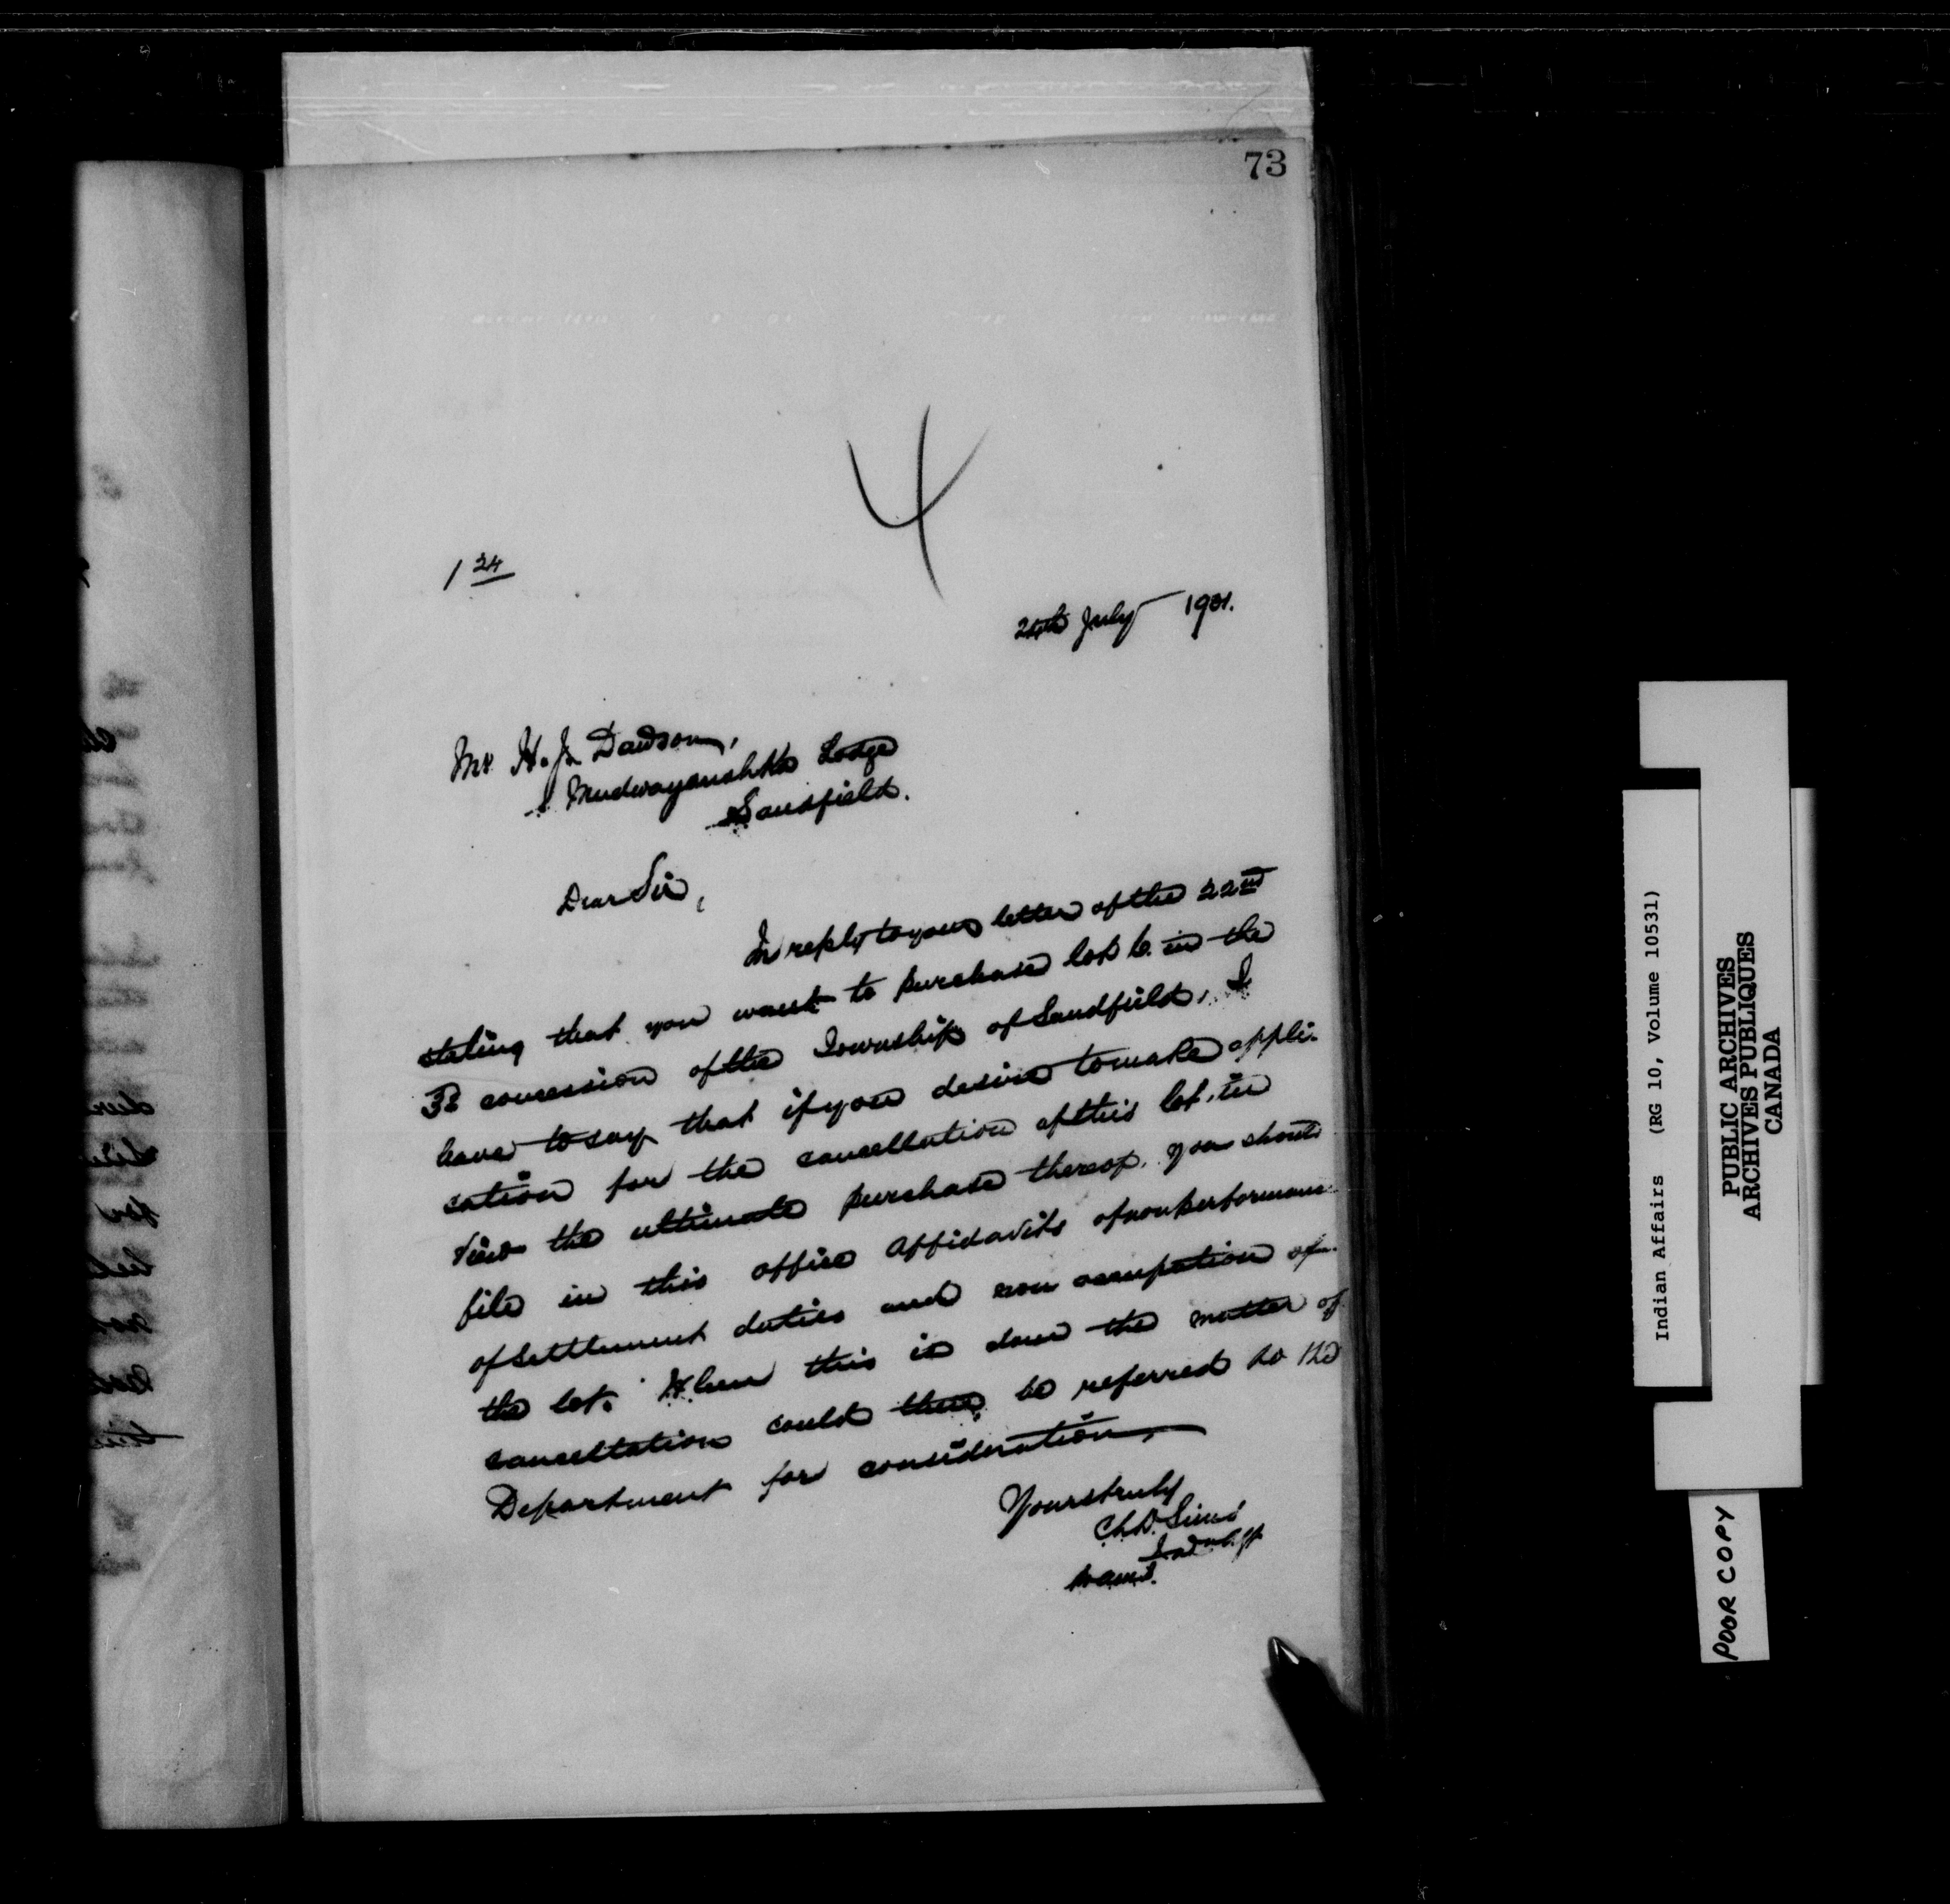 73
4
1 24
24th July 1901.
Mr. H. J. Dawson,
Lodge
Sandfield.
Dear Sir,
In reply to your letter of the 22nd
stating that you want to purchase lot 6. in the
3d concession of the Township of Sandfield, I
have to say that if you desire to make appli-
cation for the cancellation of this lot, in
view the ultimate purchase thereof, you should
file in this office affidavits of non performance
of settlement duties and non occupation of
the lot. When this is done the matter of
cancellation could then be referred to the
Department for consideration.
Yours truly
C.L.D. Sims
Ind. Agt
Indian Affairs (RG 10, Volume 10531)
PUBLIC ARCHIVES
ARCHIVES PUBLIQUES
CANADA
POOR COPY